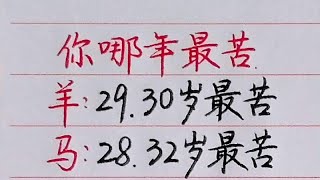 你哪年最苦
羊:29.30岁最苦
马:28.32岁最苦